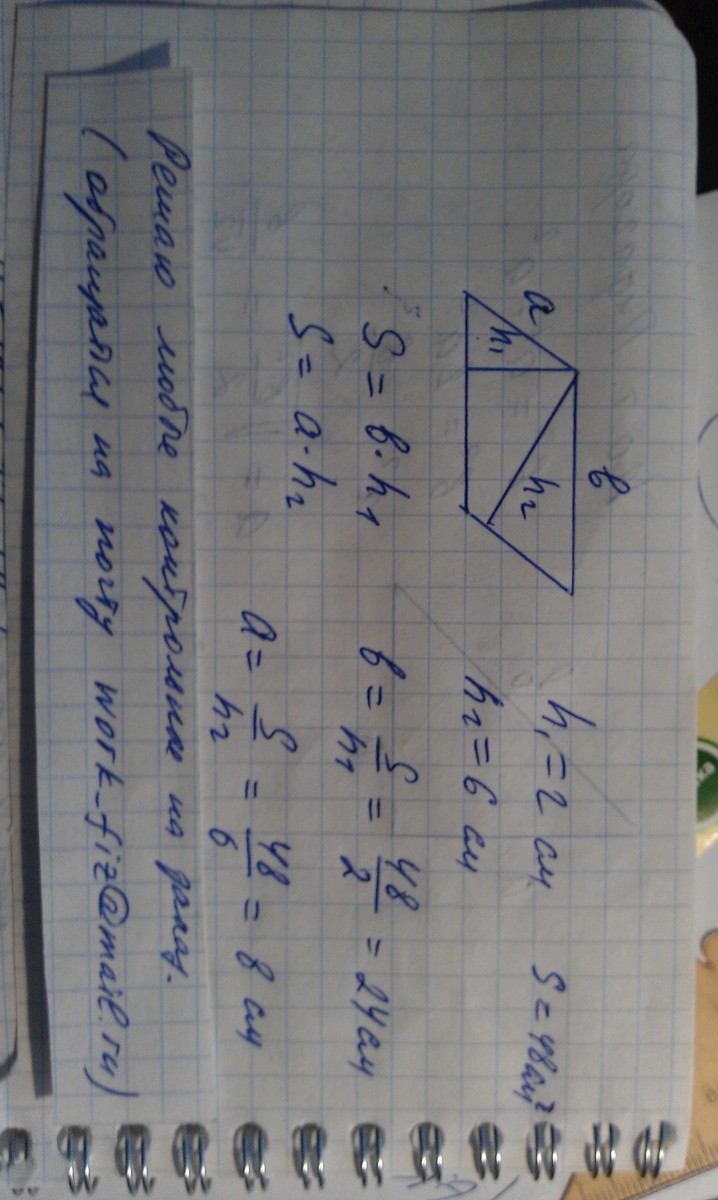 a
h₁
h₂
в
h₁ = 2 см S = 48 см²
h₂ = 6 см
S = в·h₁ в = S/h₁ = 48/2 = 24 см
S = a·h₂ a = S/h₂ = 48/6 = 8 см
Решаю любые контрольные на заказ.
(обращаться на почту work_fiz@mail.ru)